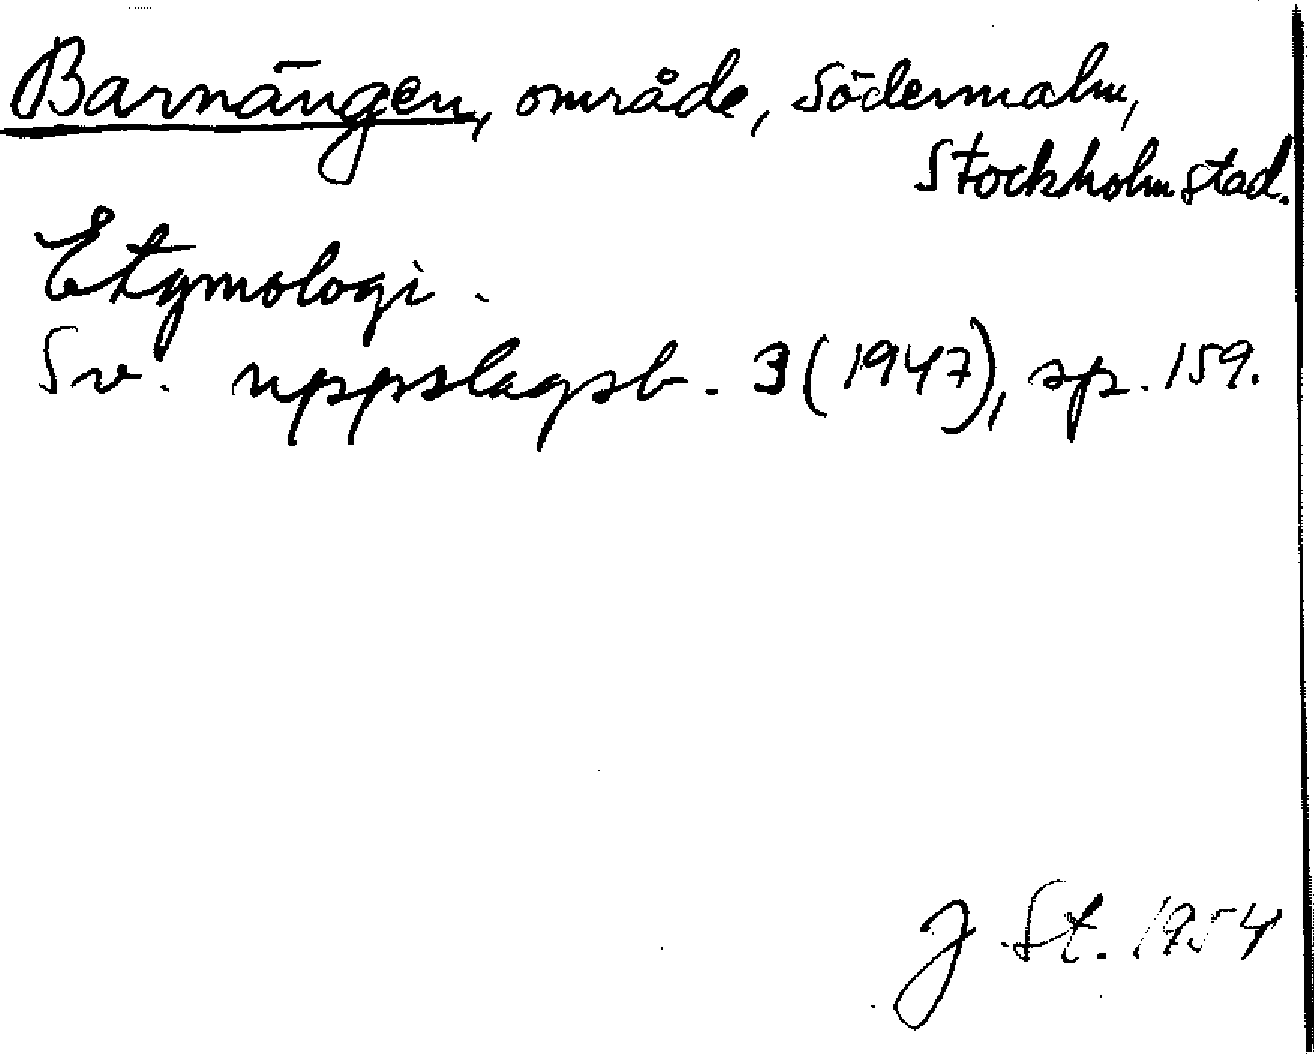 Barnängen, område, Södermalm,
Stockholm stad.
Etymologi.
Sv. uppslagsb. 3 (1947), sp. 159.
J. St. 1954